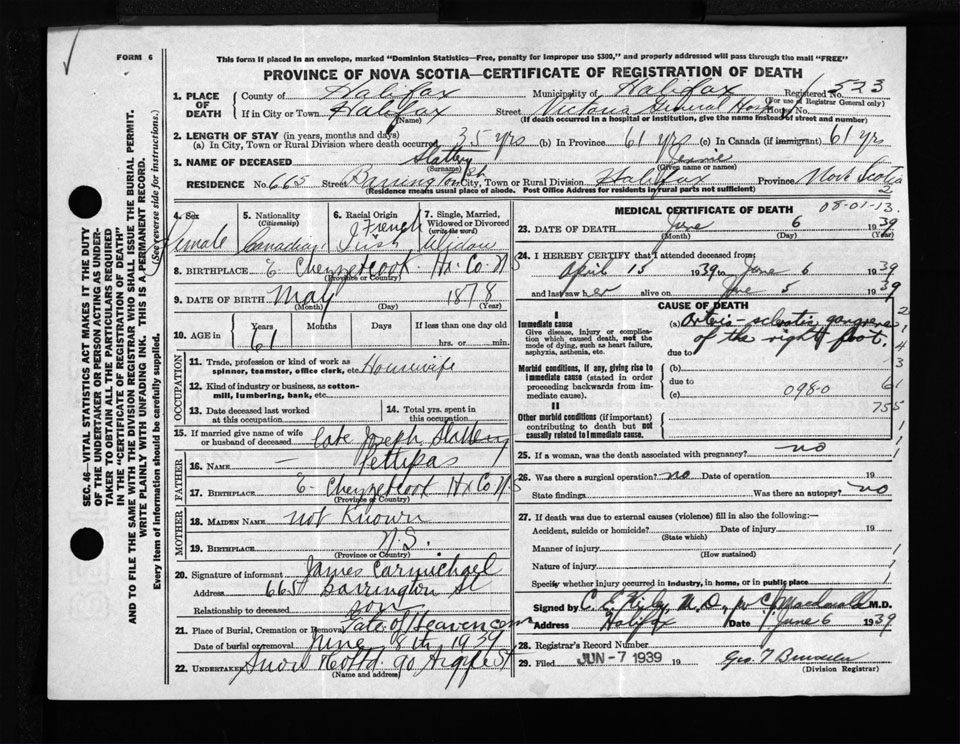 FORM 6
This form if placed in an envelope, marked "Dominion Statistics—Free, penalty for improper use $300," and properly addressed will pass through the mail "FREE"
PROVINCE OF NOVA SCOTIA—CERTIFICATE OF REGISTRATION OF DEATH
Registered No. 523
(For use of Registrar General only)
1. PLACE OF DEATH County of Halifax Municipality of Halifax
If in City or Town Halifax (Name) Street Victoria General Hosp House No.
(If death occurred in a hospital or institution, give the name instead of street and number)
2. LENGTH OF STAY (in years, months and days)
(a) In City, Town or Rural Division where death occurred 35 yrs (b) In Province 61 yrs (c) In Canada (if immigrant) 61 yrs
3. NAME OF DECEASED Slattery (Surname) (Given name or names)
RESIDENCE No. 665 Street Barrington St City, Town or Rural Division Halifax Province Nova Scotia
(Residence means usual place of abode. Post Office Address for residents in rural parts not sufficient)
2
4. Sex Female
5. Nationality (Citizenship) Canadian
6. Racial Origin French Irish
7. Single, Married, Widowed or Divorced (write the word) Widow
8. BIRTHPLACE E. Chezzetcook Hx. Co. N S
(Province or Country)
9. DATE OF BIRTH May 1878
(Month) (Day) (Year)
10. AGE in Years 61 Months Days If less than one day old hrs. or min.
OCCUPATION
11. Trade, profession or kind of work as spinner, teamster, office clerk, etc. Housewife
12. Kind of industry or business, as cotton-mill, lumbering, bank, etc.
13. Date deceased last worked at this occupation
14. Total yrs. spent in this occupation
15. If married give name of wife or husband of deceased late Joseph Slattery
FATHER
16. NAME — Pettipas
17. BIRTHPLACE E. Chezzetcook Hx Co N S
(Province or Country)
MOTHER
18. MAIDEN NAME not Known
19. BIRTHPLACE N.S.
(Province or Country)
20. Signature of informant James Carmichael
Address 665 Barrington St
Relationship to deceased son
21. Place of Burial, Cremation or Removal Gate of Heaven cem
Date of burial or removal June 8th 1939
22. Undertaker Snow Co Ltd. 90 Argyle St
(Name and address)
MEDICAL CERTIFICATE OF DEATH 08-01-13.
23. DATE OF DEATH June 6 1939
(Month) (Day) (Year)
24. I HEREBY CERTIFY that I attended deceased from:
April 15 1939 to June 6 1939
and last saw her alive on June 5 1939
CAUSE OF DEATH
I
Immediate cause
Give disease, injury or complication which caused death, not the mode of dying, such as heart failure, asphyxia, asthenia, etc.
(a) gangrene of the right foot.
due to
Morbid conditions, if any, giving rise to immediate cause (stated in order proceeding backwards from immediate cause).
(b)
due to
(c) 0980
II
Other morbid conditions (if important) contributing to death but not causally related to immediate cause.
2
1
4
3
61
755
1
25. If a woman, was the death associated with pregnancy? no
26. Was there a surgical operation? no Date of operation 19
State findings Was there an autopsy? no
27. If death was due to external causes (violence) fill in also the following:—
Accident, suicide or homicide? Date of injury 19
(State which)
Manner of injury
(How sustained)
Nature of injury
Specify whether injury occurred in industry, in home, or in public place
Signed by M.D.
Address Halifax Date June 6 1939
28. Registrar's Record Number
29. Filed JUN -7 1939 19
(Division Registrar)
SEC. 46—VITAL STATISTICS ACT MAKES IT THE DUTY
OF THE UNDERTAKER OR PERSON ACTING AS UNDER-
TAKER TO OBTAIN ALL THE PARTICULARS REQUIRED
IN THE "CERTIFICATE OF REGISTRATION OF DEATH"
AND TO FILE THE SAME WITH THE DIVISION REGISTRAR WHO SHALL ISSUE THE BURIAL PERMIT.
WRITE PLAINLY WITH UNFADING INK. THIS IS A PERMANENT RECORD.
Every item of Information should be carefully supplied. (See reverse side for instructions.)